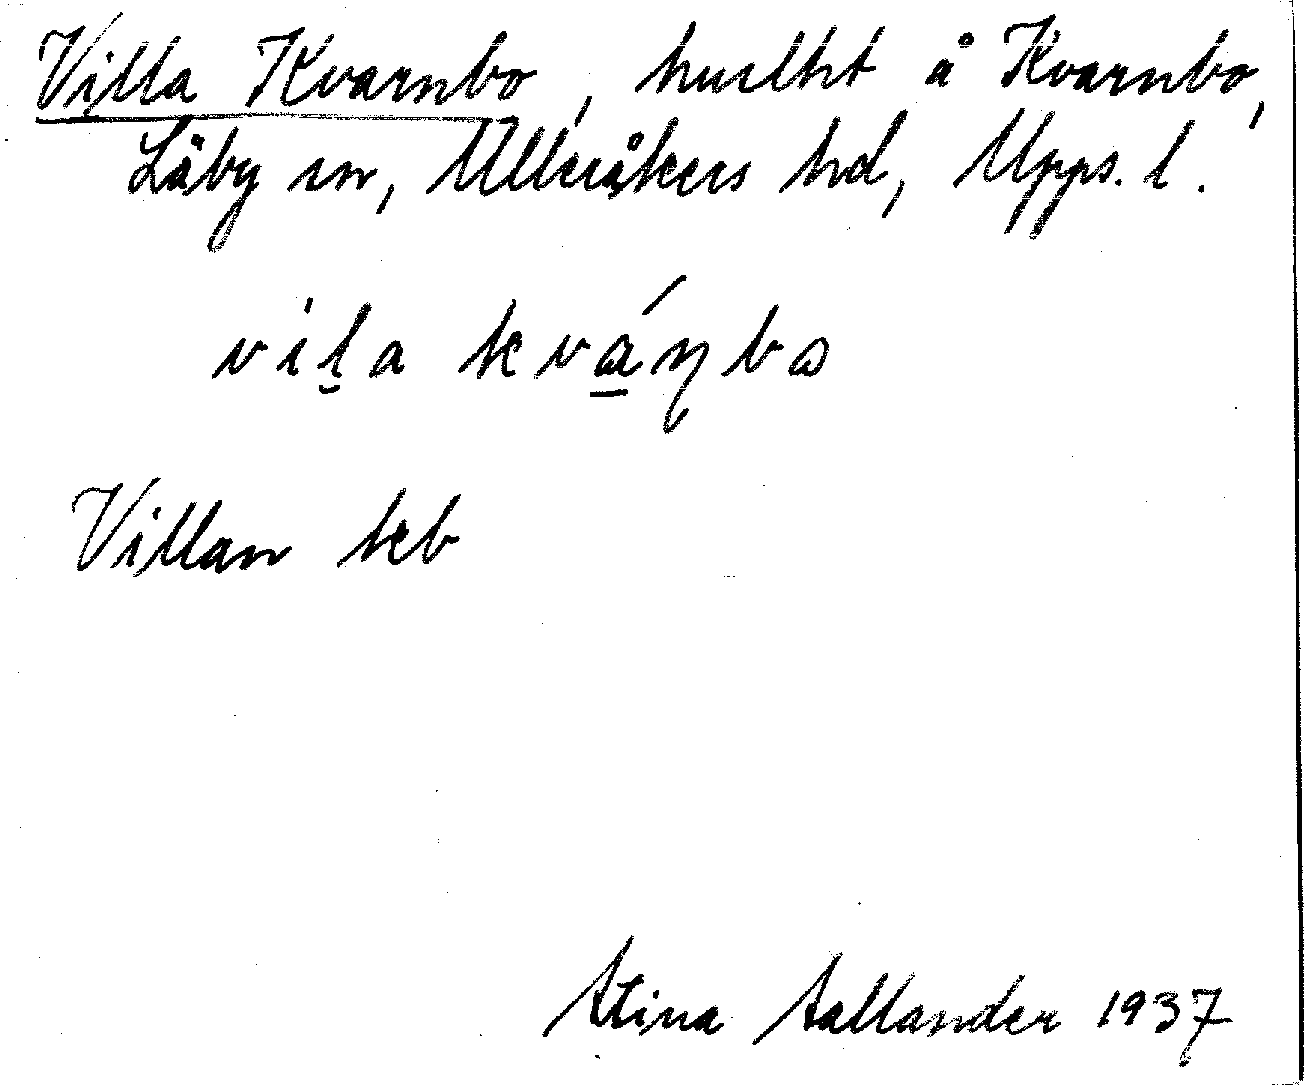 Villa Kvarnbo, huslht å Kvarnbo,
Läby sn, Ulleråkers hd, Upps. l.
vil̯a kvá̲ɳbɷ
Villan ekb
Stina Sallander 1937